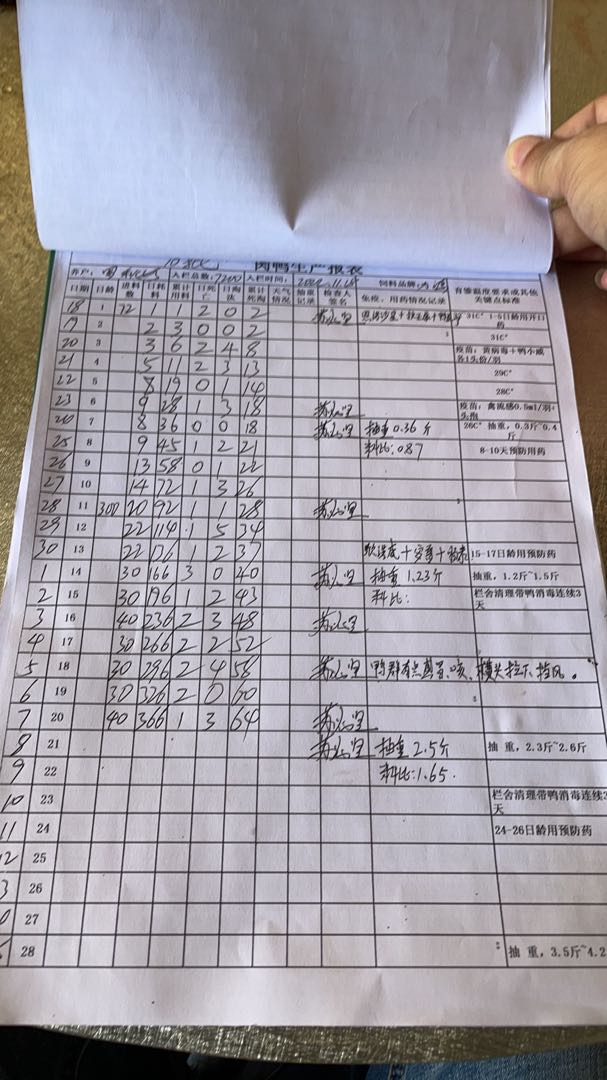 肉鸭生产报表
养户： 入栏总数：7200 入栏时间： 饲料品牌：
日期 日龄 进料数 日耗料 累计用料 日死亡 日淘汰 累计死淘 天气情况 抽重记录 检查人签名 免疫、用药情况记录 育雏温度要求或其他关键点标准
18 1 72 1 1 2 0 2 31C° 1-5日龄用开口药
19 2 2 3 0 0 2 31C°
20 3 3 6 2 4 8 疫苗：黄病毒+鸭小减各1头份/羽
21 4 5 11 2 3 13 29C°
22 5 8 19 0 1 14 28C°
23 6 9 28 1 3 18 疫苗：禽流感0.5ml/羽+头孢
7 8 36 0 0 18 抽重 0.36 斤 26C° 抽重，0.3斤~0.4斤
25 8 9 45 1 2 21 料比：0.87 8-10天预防用药
26 9 13 58 0 1 22
27 10 14 72 1 3 26
28 11 300 20 92 1 1 28
29 12 22 114 1 5 34
30 13 22 1 2 37 15-17日龄用预防药
1 14 30 166 3 0 40 抽重 1.23斤 抽重，1.2斤~1.5斤
2 15 30 196 1 2 43 料比： 栏舍清理带鸭消毒连续3天
3 16 40 236 2 3 48
4 17 30 266 2 2 52
5 18 30 296 2 4 58 鸭群有点 咳、 挡风。
6 19 30 326 2 0 60
7 20 40 366 1 3 64
8 21 抽重 2.5斤 抽 重，2.3斤~2.6斤
9 22 料比：1.65.
10 23 栏舍清理带鸭消毒连续3天
11 24 24-26日龄用预防药
12 25
3 26
27
28 抽 重，3.5斤~4.2